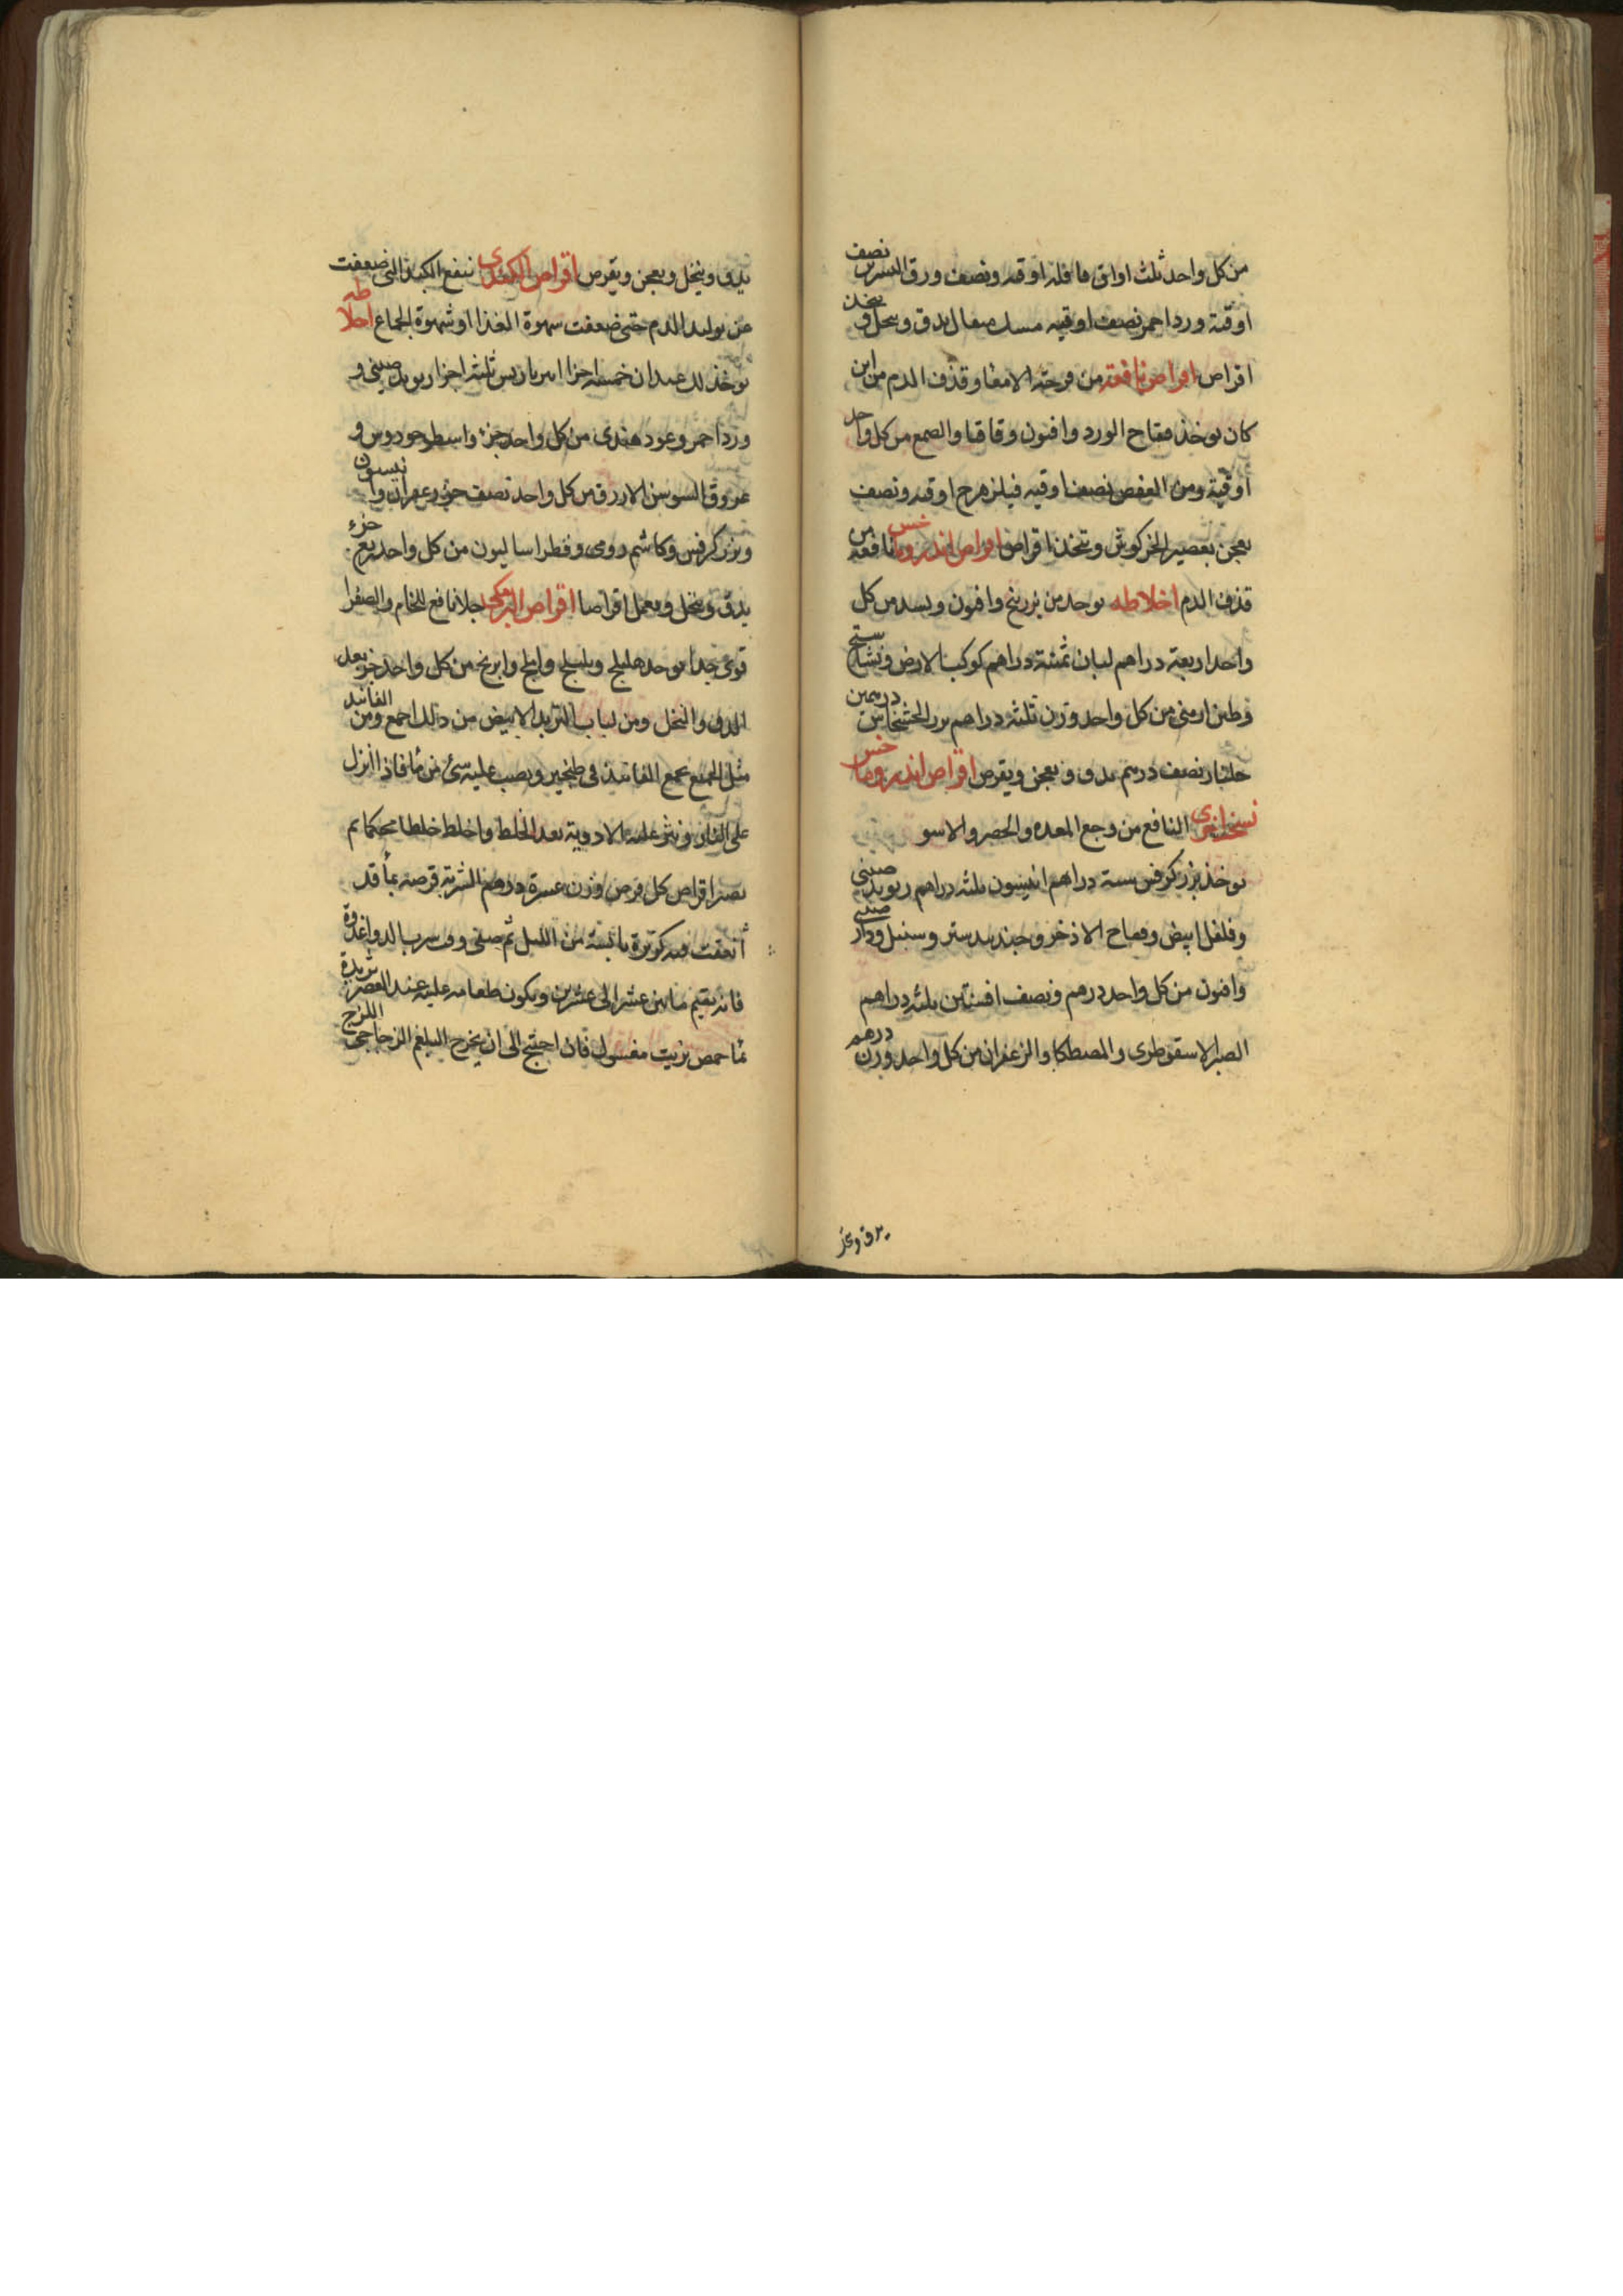 من كل واحد ثلث اواق قاقله اوقيه ونصف ورق النسرين نصف
اوقية ورد احمر نصف اوقيه مسك مثقال يدق وينخل ويتخذ
اقراص اقراص نافعة من قرحة الامعا وقذف الدم من اين
كان يوخذ فقاح الورد وافيون وقاقيا والصمغ من كل واحد
أوقية ومن العفص نصف اوقيه فيلزهرج اوقيه ونصف
يعجن بعصير الخركوش وتتخذ اقراص اقراص اندروماخس نافعة من
قذف الدم اخلاطه يوخذ من بزر بنج وافيون وبسد من كل
واحد اربعة دراهم لبان ثمنية دراهم كوكب الارض ونشاستج
وطين ارمنى من كل واحد وزن ثلثة دراهم بزر الخشخاش درهمين
جلنار نصف درهم يدق ويعجن ويقرص اقراص اندروماخس
نسخة اخرى النافع من وجع المعده والحصر والاسو
يوخذ بزر كرفس ستة دراهم انيسون ثلثه دراهم ريوند صينى
وفلفل ابيض وفقاح الاذخر وجندبيدستر وسنبل ودار صينى
وافيون من كل واحد درهم ونصف افسنتين ثلثه دراهم
الصبر الاسقوطرى والمصطكا والزعفران من كل واحد وزن درهم
يدق وينخل ويعجن ويقرص اقراص الكندى ينفع الكبد التى ضعفت
عن توليد الدم حتى ضعفت شهوة الغذا او شهوة الجماع اخلاطه
يوخذ لك عيدان خمسة اجزا امبرباريس ثلثه اجزا ريوند صينى و
ورد احمر وعود هندى من كل واحد جزء واسطوخودوس و
عروق السوسن الازرق من كل واحد نصف جزء زعفران وانيسون
وبزر كرفس وكاشم رومى وفطراساليون من كل واحد ربع جزء
يدق وينخل ويعمل اقراصا اقراص البرمكى جلا نافع للخام والصفرا
قوى جدا يوخذ هليلج وبليلج واملج وابرنج من كل واحد جزء بعد
الدق والنخل ومن لباب التربد الابيض من ذلك اجمع ومن الفانيد
مثل الجميع يجمع الفانيذ فى طنجير ويصب عليه شئ من مآ فاذا انزل
على النار ونثر عليه الادوية بعد الخلط واخلط خلطا محكما ثم
يصير اقراص كل قرص وزن عشرة دراهم الشربة قرصه بمآ قد
أنقعت فيه كزبرة يابسة من الليل ثم صفى وشرب الدوا غدوة
فانه يقيم ما بين عشر الى عشرين ويكون طعامه عليه عند العصر ثريدة
مآ حمص بزيت مغسول فان احتيج الى ان يخرج البلغم الزجاجى اللزج